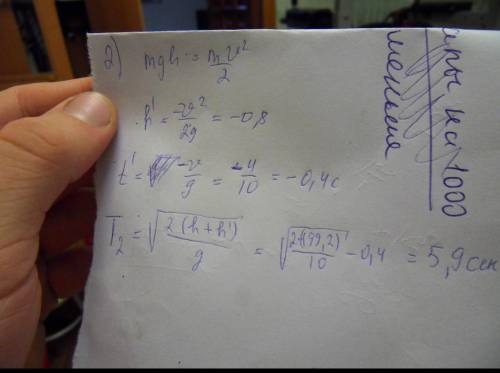 2) mgh = mv²/2
h' = -v²/2g = -0,8
t' = -v/g = -4/10 = -0,4 с
T₂ = √(2(h+h')/g) = √(2·(199,2)/10) - 0,4 = 5,9 сек
на 1000
меньше